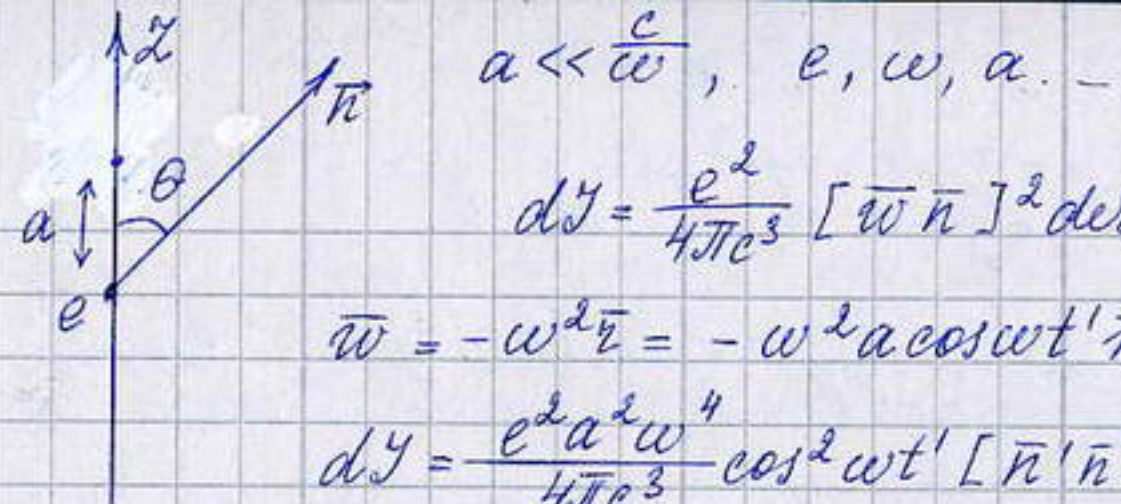 Z
n̄
a << c/ω, e, ω, a. –
a θ
dJ = e²/4πc³ [w̄ n̄]² do
e
w̄ = -ω² r̄ = - ω² a cosωt'
dJ = e²a²ω⁴/4πc³ cos² ωt' [n̄' n̄